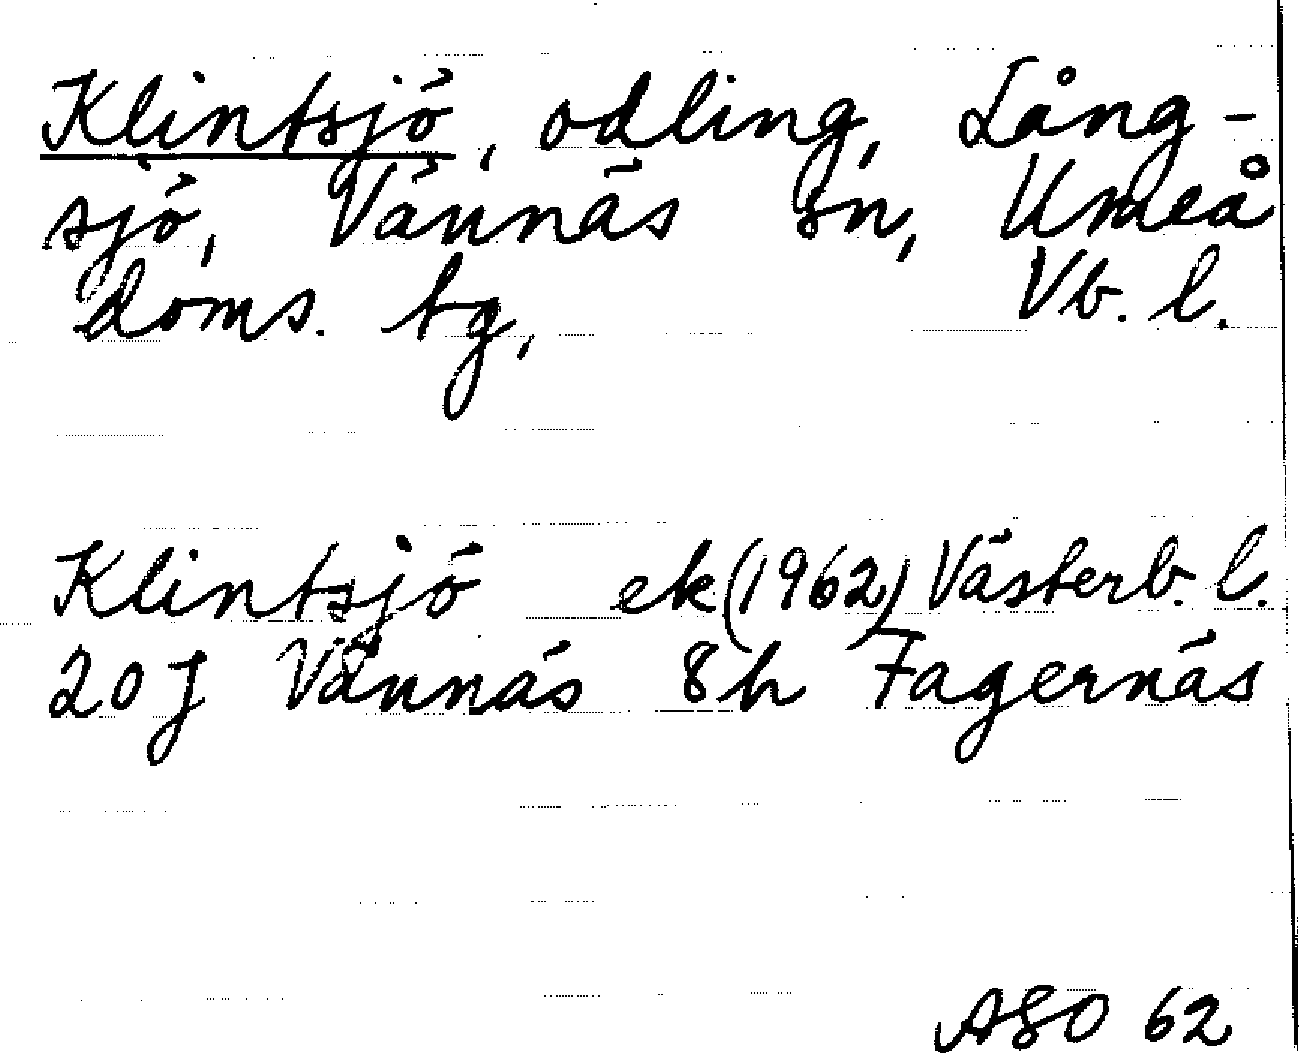 Klintsjö, odling, Lång-
sjö, Vännäs sn, Umeå
doms. tg, Vb. l.
Klintsjö ek (1962) Västerb. l.
20 J Vännäs 8h Fagernäs
ASO 62